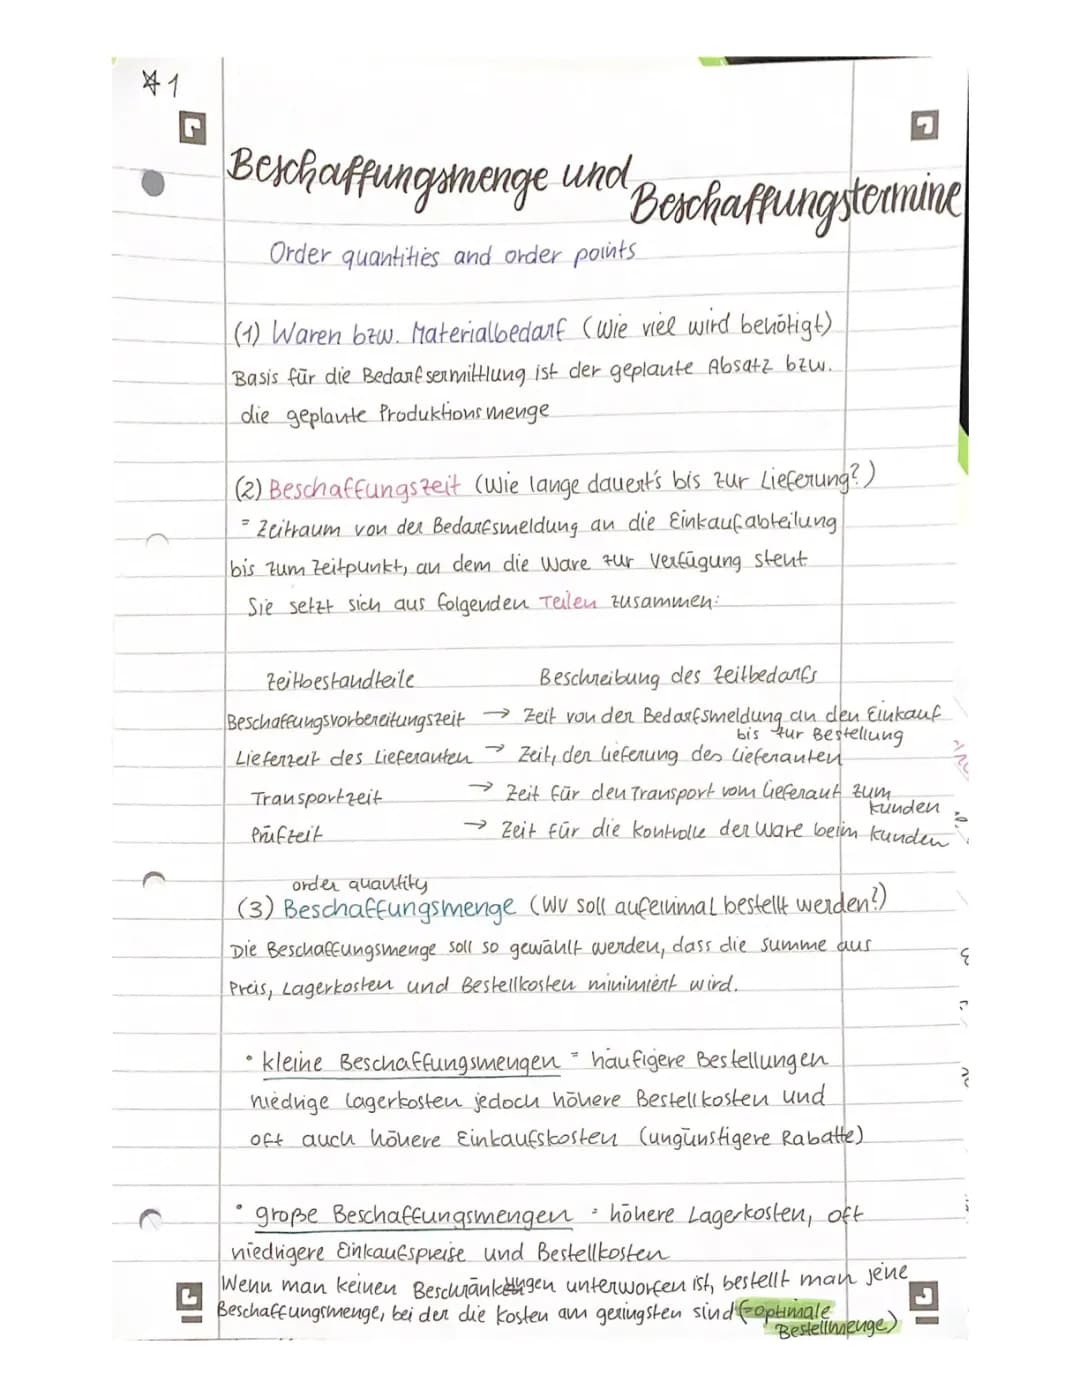 ☆1
Beschaffungsmenge und
Beschaffungstermine
Order quantities and order points
(1) Waren bzw. Materialbedarf (Wie viel wird benötigt)
Basis für die Bedarfsermittlung ist der geplante Absatz bzw.
die geplante Produktionsmenge
(2) Beschaffungszeit (Wie lange dauert's bis zur Lieferung?)
= Zeitraum von der Bedarfsmeldung an die Einkaufabteilung
bis zum Zeitpunkt, an dem die Ware zur Verfügung steht
Sie setzt sich aus folgenden Teilen zusammen:
Zeitbestandteile Beschreibung des Zeitbedarfs
Beschaffungsvorbereitungszeit → Zeit von der Bedarfsmeldung an den Einkauf
bis zur Bestellung
Lieferzeit des Lieferanten → Zeit, der Lieferung des Lieferanten
Transportzeit → Zeit für den Transport vom Lieferant zum
kunden
Prüfzeit → Zeit für die kontrolle der Ware beim kunden
order quantity
(3) Beschaffungsmenge (Wv soll aufeinmal bestellt werden?)
Die Beschaffungsmenge soll so gewählt werden, dass die Summe aus
Preis, Lagerkosten und Bestellkosten minimiert wird.
• kleine Beschaffungsmengen = häufigere Bestellungen
niedrige Lagerkosten jedoch höhere Bestellkosten und
oft auch höhere Einkaufskosten (ungünstigere Rabatte)
• große Beschaffungsmengen = höhere Lagerkosten, oft
niedrigere Einkaufspreise und Bestellkosten
Wenn man keinen Beschränkungen unterworfen ist, bestellt man jene
Beschaffungsmenge, bei der die Kosten am geringsten sind (=optimale
Bestellmenge)